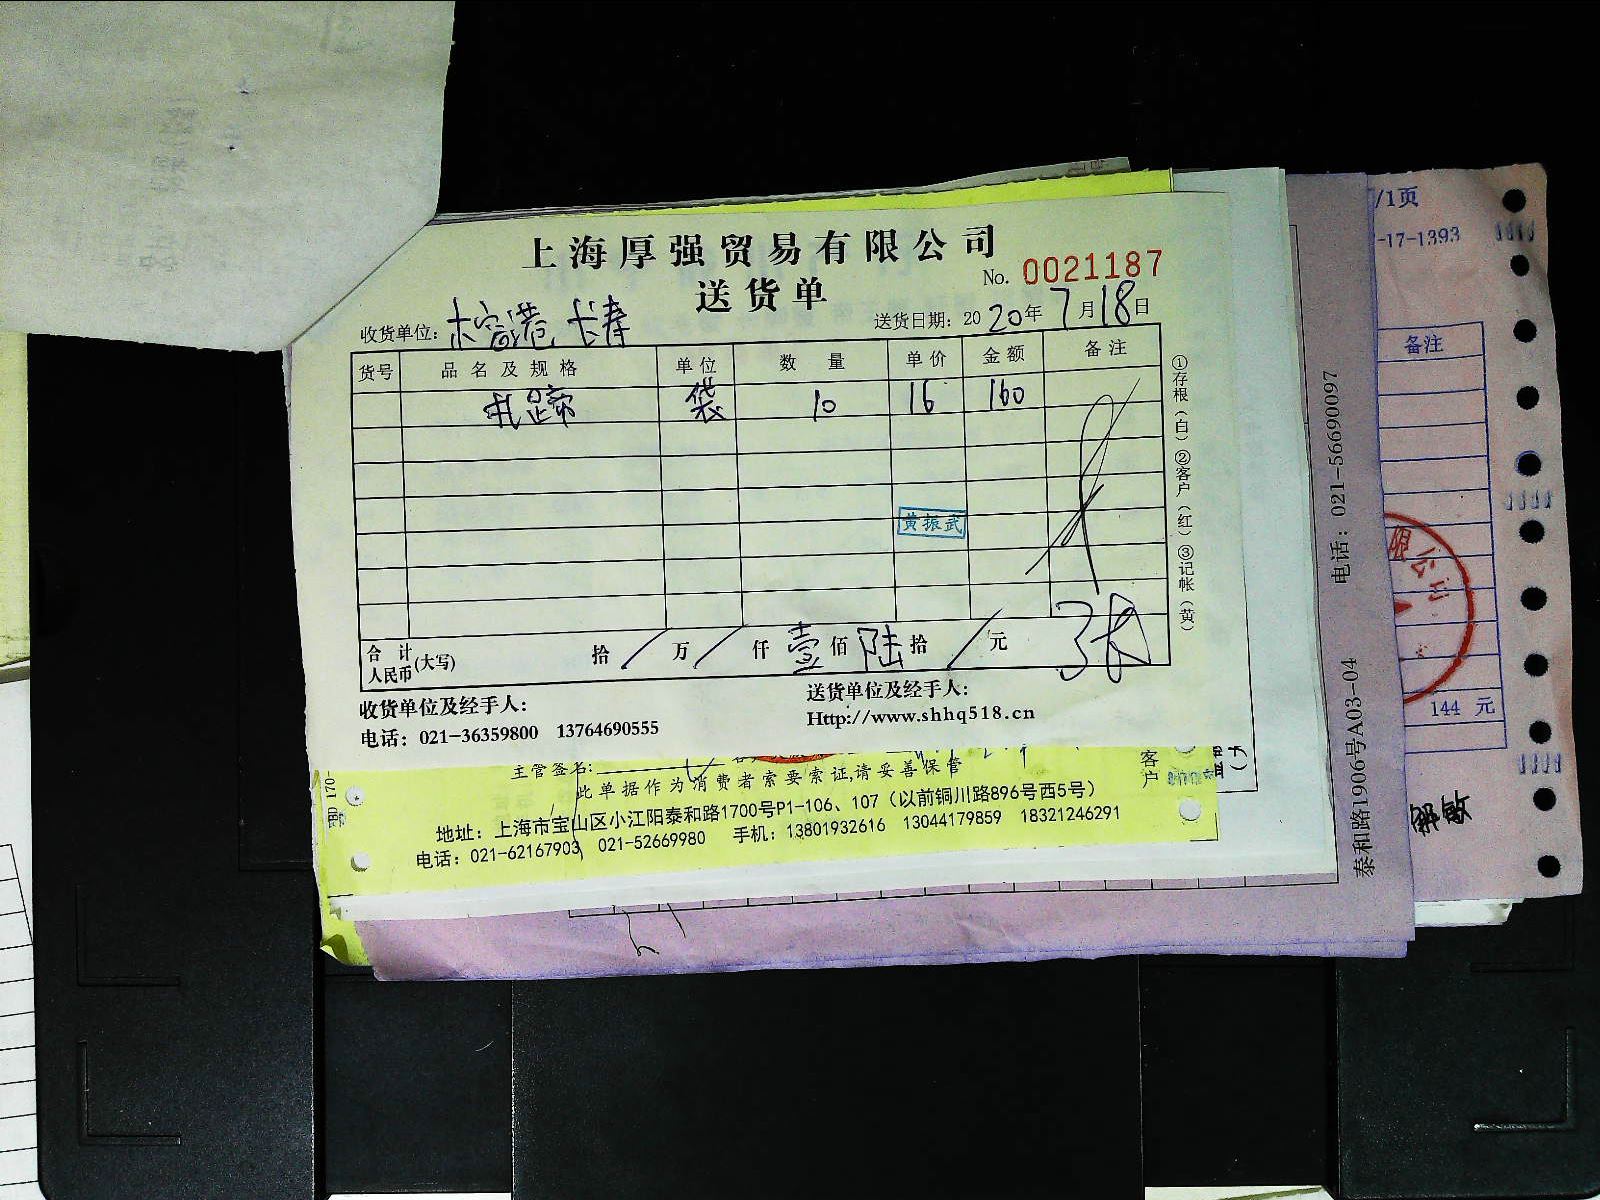 上海厚强贸易有限公司
送货单
No. 0021187
收货单位: 长寿
送货日期: 2020年7月18日
货号 品名及规格 单位 数量 单价 金额 备注
袋 10 16 160
黄振武
合计人民币(大写) 拾/万/仟壹佰陆拾/元
收货单位及经手人:
送货单位及经手人:
电话: 021-36359800 13764690555
Http://www.shhq518.cn
①存根(白)②客户(红)③记帐(黄)
主管签名:
此单据作为消费者索要索证,请妥善保管
地址: 上海市宝山区小江阳泰和路1700号P1-106、107（以前铜川路896号西5号）
电话: 021-62167903 021-52669980 手机: 13801932616 13044179859 18321246291
客户
泰和路1906号A03-04 电话: 021-56690097
/1页
-17-1393
备注
限公司
144 元
解敏